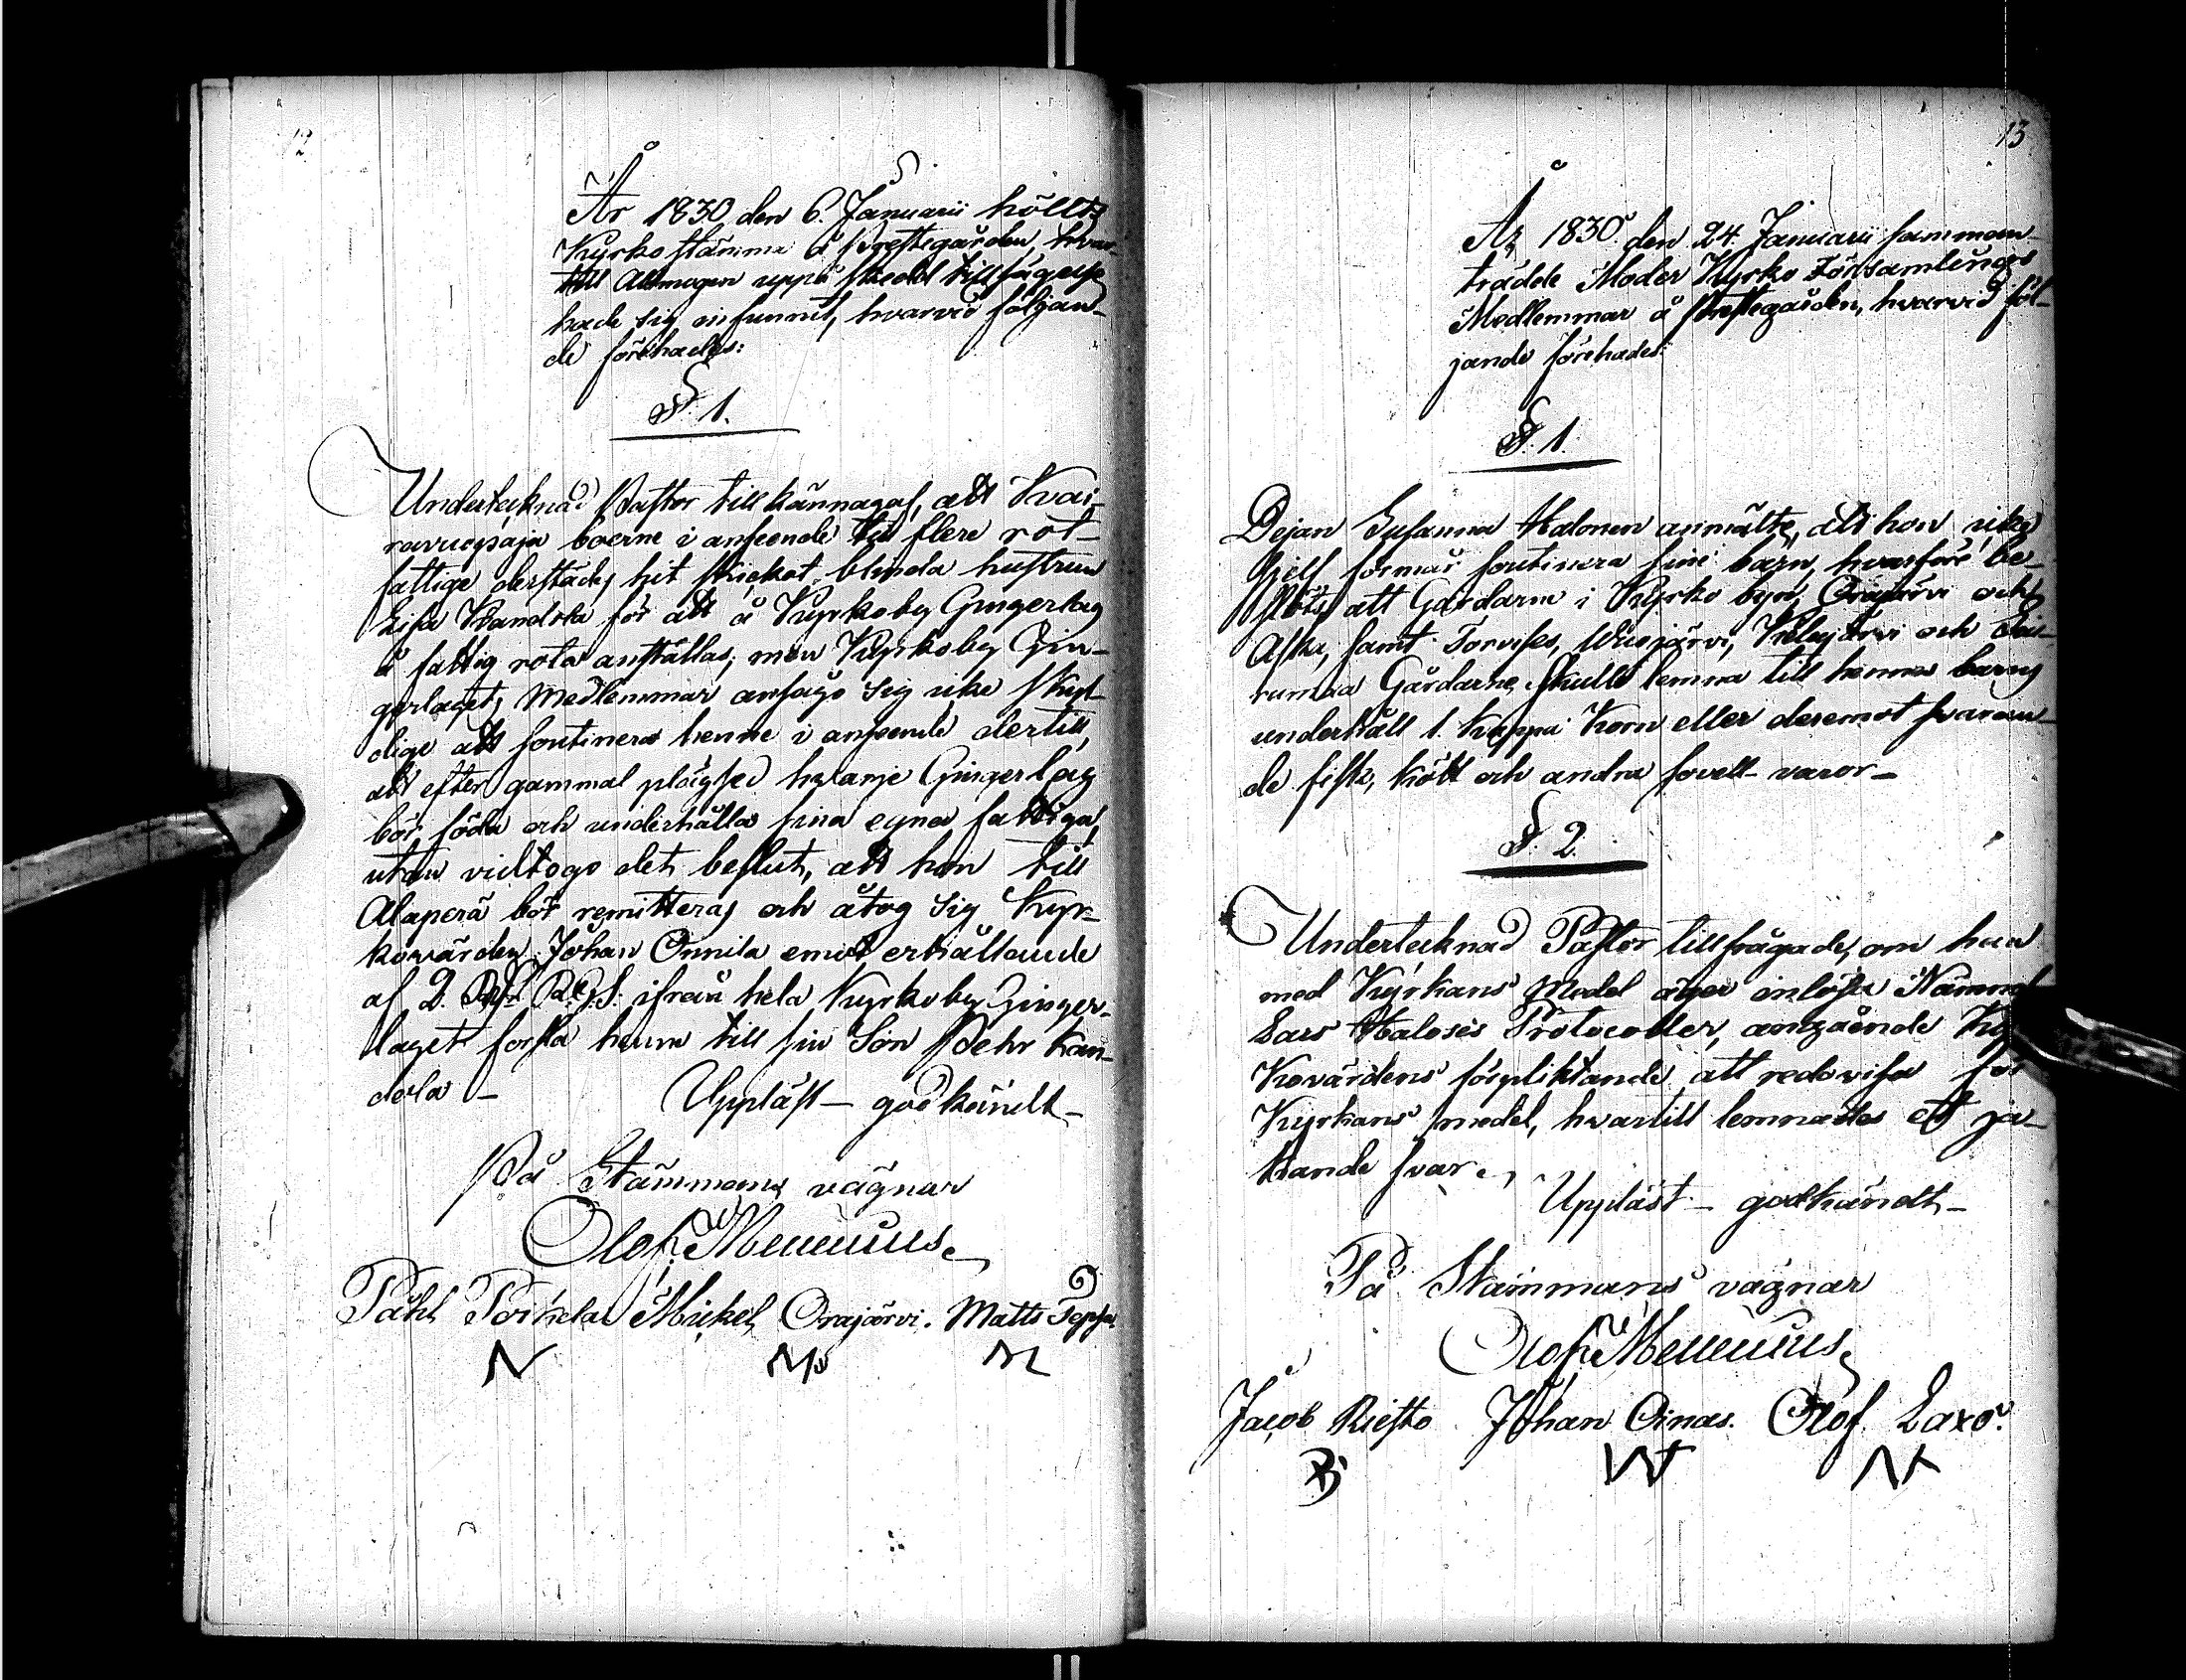 12
År 1830 den 6. Januarii hölltz
Kyrkostämma å Prestegården, hvar-
till Allmogen uppå skedd tillsägelse
hade sig infunnit, hvarvid följan-
de förehades:
§. 1.
Undertecknad Pastor tillkännagaf, att
boerne i anseende till flere rot-
fattige derstädes hit skickat blinda hustrun
Lisa Kandola för att å Kyrkoby Gingerlag
å fattig rota anställas; men Kyrkoby Gin-
gerlagets Medlemmar ansågo sig icke skyl-
dige att soutinera henne i anseende dertill,
att efter gammal plägsed hvarje Gingerlag
bör föda och underhålla sina egna fattiga,
utan vidtogo det beslut, att hon till
Alaperä bör remitteras och åtog sig Kyr-
kovärden Johan Onnila emot erhållande
af 2. R.G.S. ifrån hela Kyrkoby Ginger-
laget forsla henne till sin Son Pehr Kan-
dola –
Uppläst – godkändt –
På Stämmans vägnar
Olof Mellenius
Påhl Poikela Mickel Orajärvi. Matts Peppa
N M M
13
År 1830 den 24. Januarii samman-
trädde Moder Kyrko Församlings
Medlemmar å Prestegården, hvarvid föl-
jande förehades:
§. 1.
Pejan Susanna Halonen anmälte, att hon icke
sjelf förmår soutinera sine barn, hvarföre be-
slöts, att Gårdarne i Kyrko byn, Orajärvi och
Aska, samt Torvises, Wuojärvi, Kelujärvi och
Gårdarne, skulle lemna till hennes barns
underhåll 1. Kappa Korn eller deremot svaran-
de fisk, kött och andra sovell-varor –
§. 2.
Undertecknad Pastor tillfrågade, om han
med Kyrkans Medel äger inlösa Nämnd.
Lars Haloses Protocoller, angående Kyr
Kovärdens förpliktande att redovisa för
Kyrkans medel, hvartill lemnades ett ja-
kande svar.
Uppläst – godkändt –
På Stämmans vägnar
Olof Mellenius
Jacob Riesto Johan Oinas. Olof Laxo.